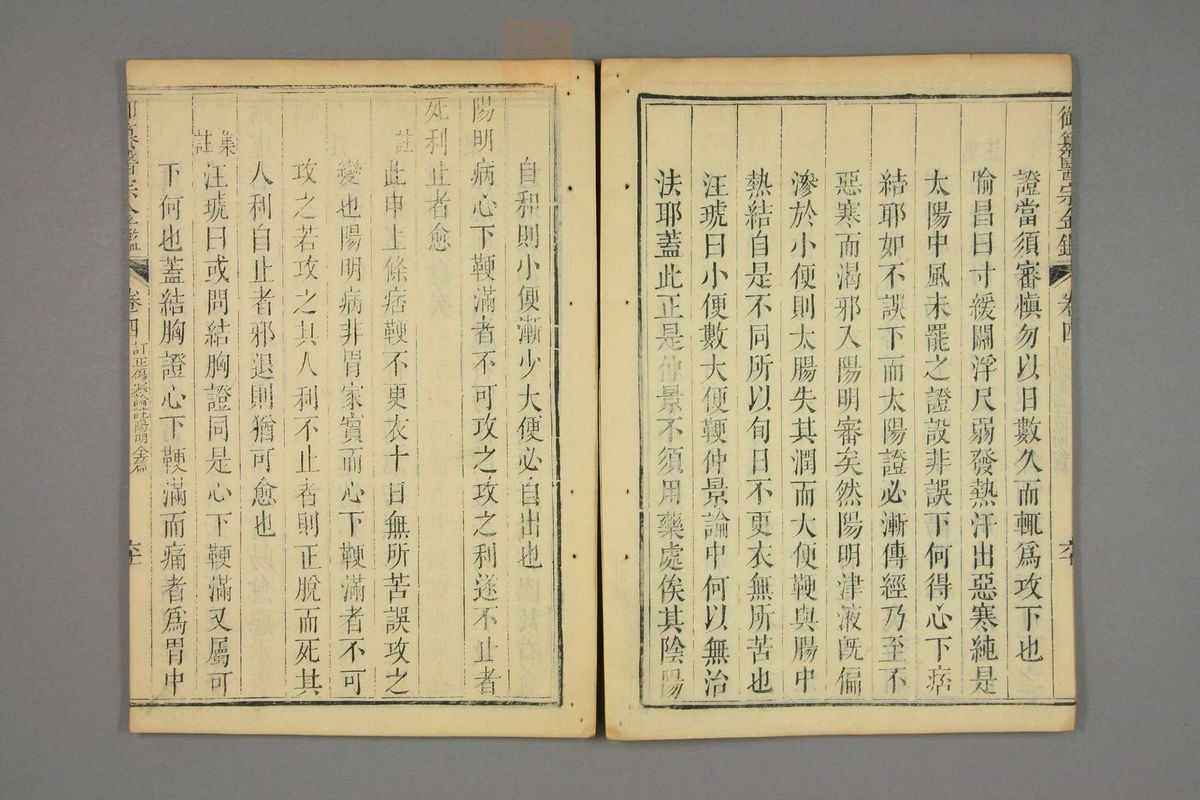 御纂醫宗金鑑 卷四 六十
證當須審愼勿以日數久而輒爲攻下也
喻昌曰寸緩關浮尺弱發熱汗出惡寒純是
太陽中風未罷之證設非誤下何得心下痞
結耶如不誤下而太陽證必漸傳經乃至不
惡寒而渴邪入陽明審矣然陽明津液旣偏
滲於小便則太腸失其潤而大便鞕與腸中
熱結自是不同所以旬日不更衣無所苦也
汪琥曰小便數大便鞕仲景論中何以無治
法耶蓋此正是仲景不須用藥處俟其陰陽
自和則小便漸少大便必自出也
陽明病心下鞕滿者不可攻之攻之利遂不止者
死利止者愈
註 此申上條痞鞕不更衣十日無所苦誤攻之
變也陽明病非胃家實而心下鞕滿者不可
攻之若攻之其人利不止者則正脫而死其
人利自止者邪退則猶可愈也
集註 汪琥曰或問結胸證同是心下鞕滿又屬可
下何也蓋結胸證心下鞕滿而痛者爲胃中
御纂醫宗金鑑 卷四 訂正傷寒論註陽明全篇